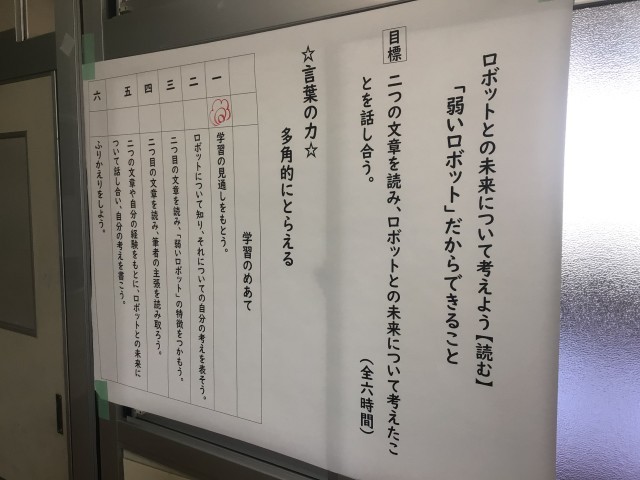 ロボットとの未来について考えよう【読む】
「弱いロボット」だからできること
目標 二つの文章を読み、ロボットとの未来について考えたこ
とを話し合う。
（全六時間）
☆言葉の力☆
多角的にとらえる
学習のめあて
一 学習の見通しをもとう。
二 ロボットについて知り、それについての自分の考えを表そう。
三 二つ目の文章を読み、「弱いロボット」の特徴をつかもう。
四 二つ目の文章を読み、筆者の主張を読み取ろう。
五 二つの文章や自分の経験をもとに、ロボットとの未来に
ついて話し合い、自分の考えを書こう。
六 ふりかえりをしよう。